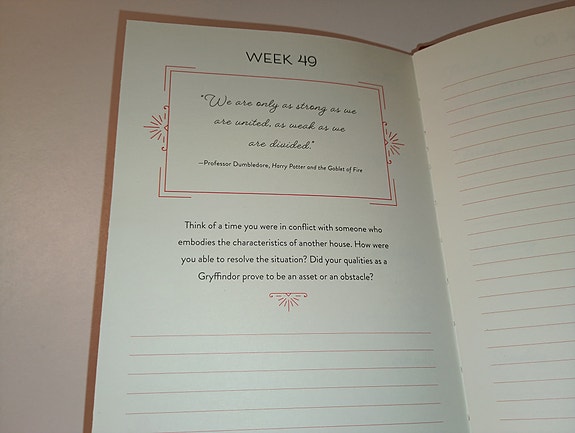 WEEK 49
"We are only as strong as we
are united, as weak as we
are divided."
—Professor Dumbledore, Harry Potter and the Goblet of Fire
Think of a time you were in conflict with someone who
embodies the characteristics of another house. How were
you able to resolve the situation? Did your qualities as a
Gryffindor prove to be an asset or an obstacle?